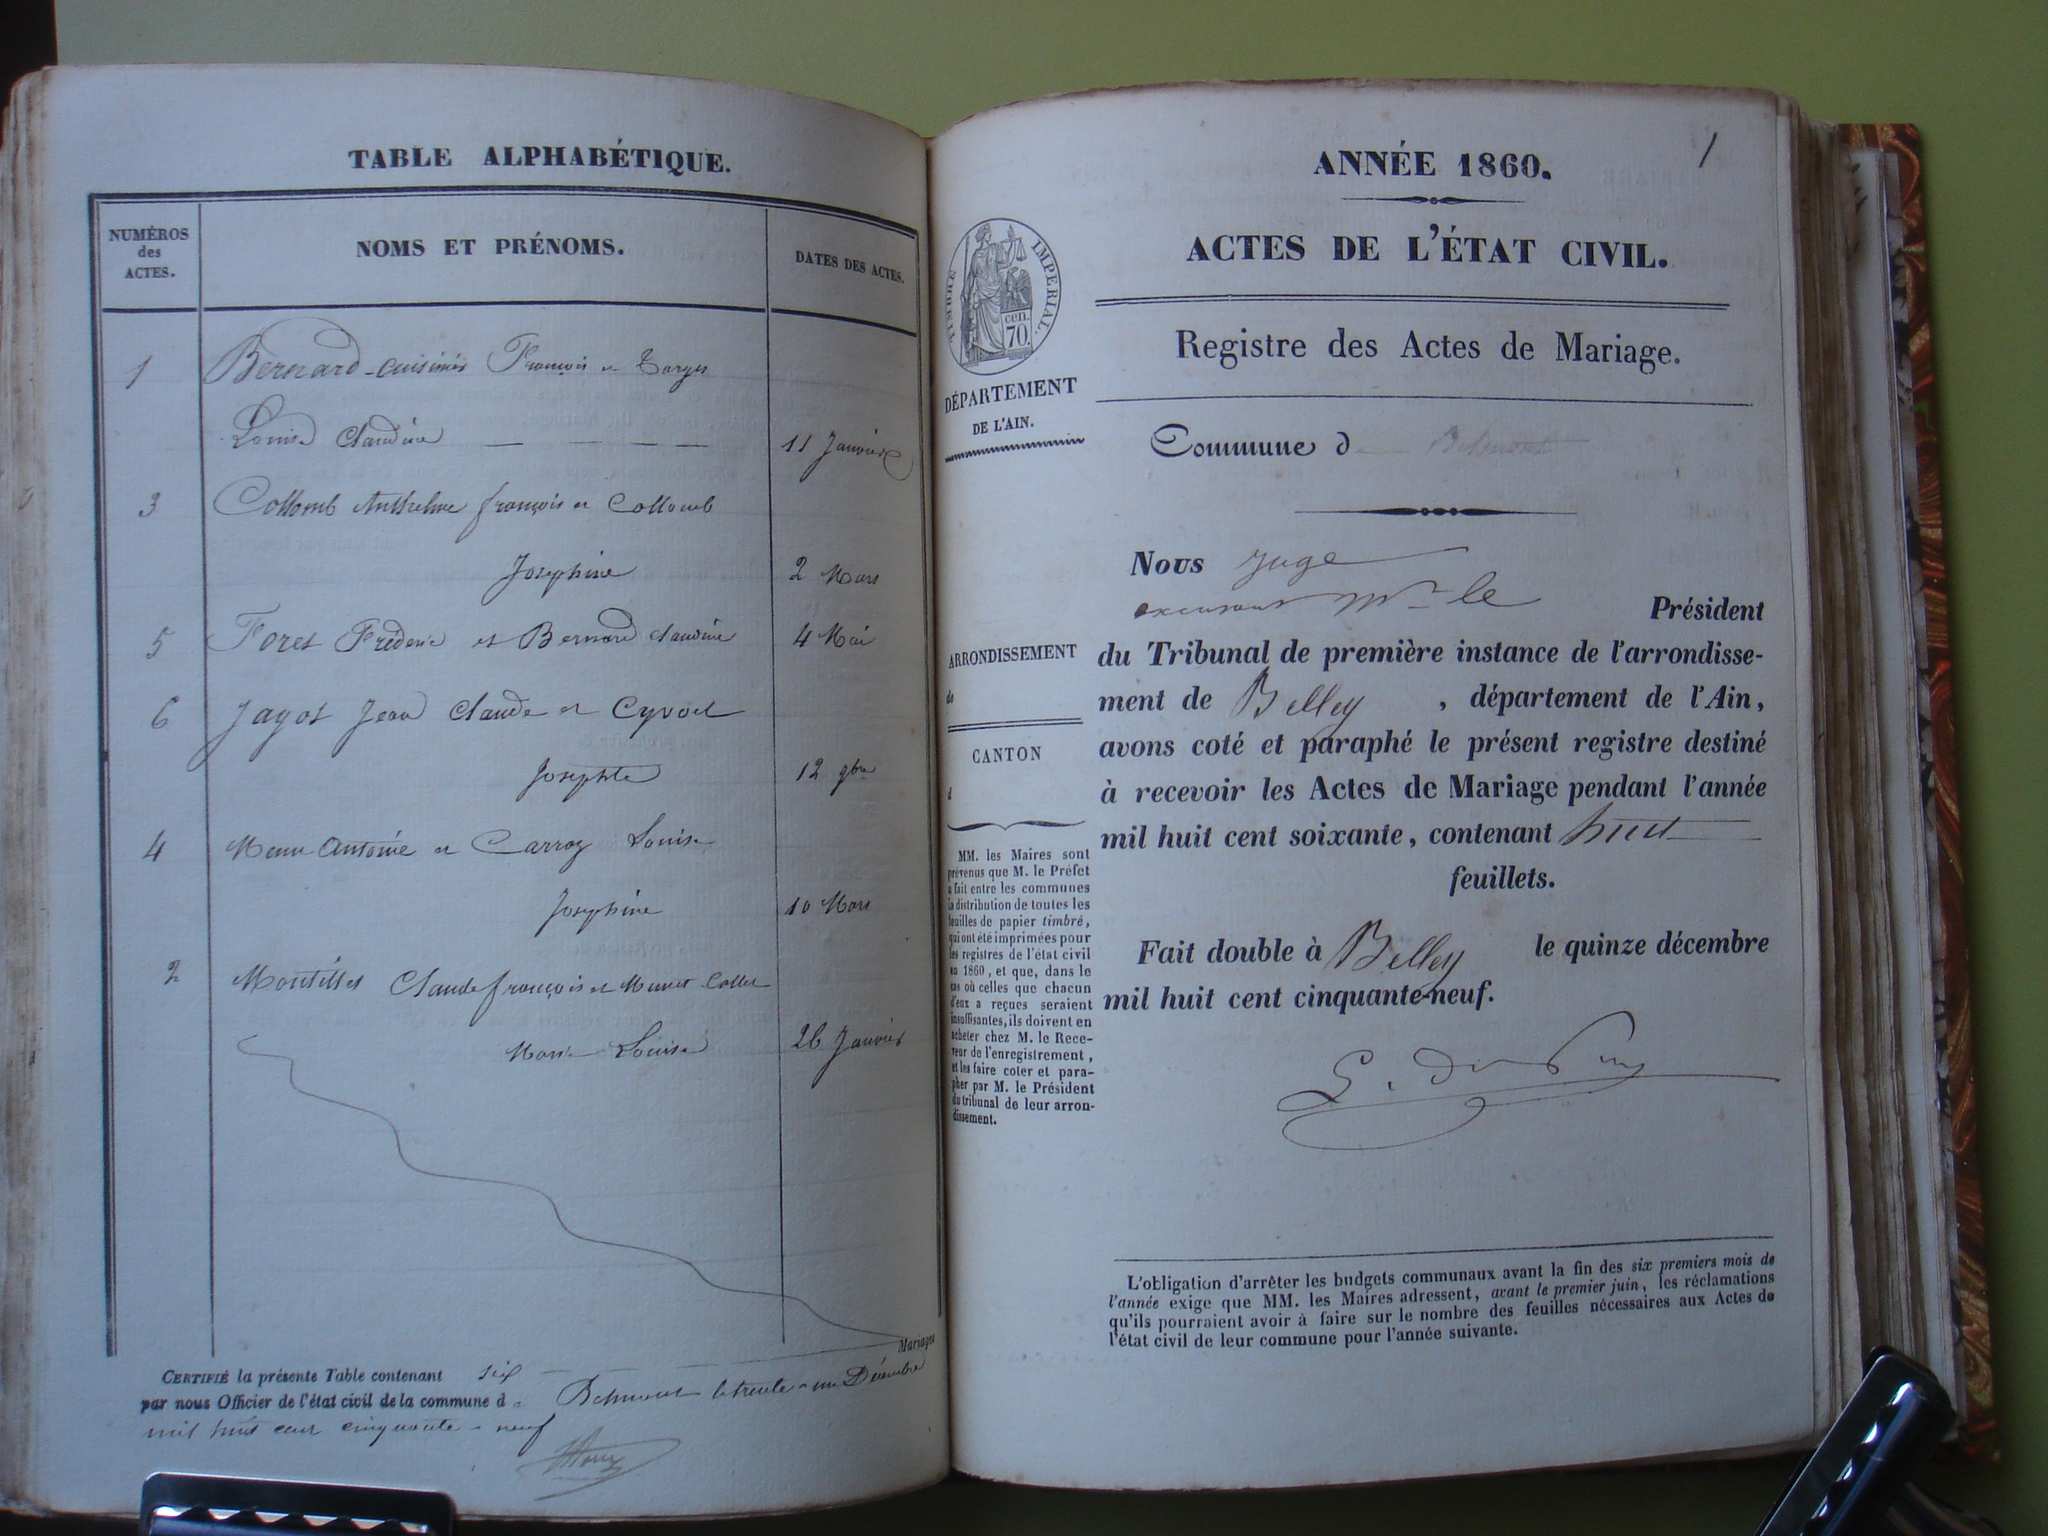 TABLE ALPHABÉTIQUE.
NUMÉROS
des
ACTES.
NOMS ET PRÉNOMS.
DATES DES ACTES.
1 Bernard François et
Louise Claudine 11 Janvier
3 Collomb Anthelme françois et Collomb
Josephine 2 Mars
5 Foret Fréderic et Bernard Claudine 4 Mai
6 Jagot Jean Claude et Cyvoct
Josephte 12 9bre
4 Antoine et Carroz Louise
Josephine 10 Mars
2 Montillet Claude françois et Collet
Marie Louise 26 Janvier
Mariages
CERTIFIÉ la présente Table contenant six
par nous Officier de l'état civil de la commune d Belmont le trente-un Décembre
mil huit cent cinquante-neuf
1
ANNÉE 1860.
ACTES DE L'ÉTAT CIVIL.
Registre des Actes de Mariage.
TIMBRE IMPÉRIAL.
cen.
70.
DÉPARTEMENT
DE L'AIN.
Commune d Belmont
ARRONDISSEMENT
de
CANTON
d
MM. les Maires sont
prévenus que M. le Préfet
a fait entre les communes
la distribution de toutes les
feuilles de papier timbré,
qui ont été imprimées pour
les registres de l'état civil
en 1860, et que, dans le
cas où celles que chacun
d'eux a reçues seraient
insuffisantes, ils doivent en
acheter chez M. le Rece-
veur de l'enregistrement,
et les faire coter et para-
pher par M. le Président
du tribunal de leur arron-
dissement.
Nous Juge
excusant Mr le Président
du Tribunal de première instance de l'arrondisse-
ment de Belley, département de l'Ain,
avons coté et paraphé le présent registre destiné
à recevoir les Actes de Mariage pendant l'année
mil huit cent soixante, contenant huit
feuillets.
Fait double à Belley le quinze décembre
mil huit cent cinquante-neuf.
L'obligation d'arrêter les budgets communaux avant la fin des six premiers mois de
l'année exige que MM. les Maires adressent, avant le premier juin, les réclamations
qu'ils pourraient avoir à faire sur le nombre des feuilles nécessaires aux Actes de
l'état civil de leur commune pour l'année suivante.